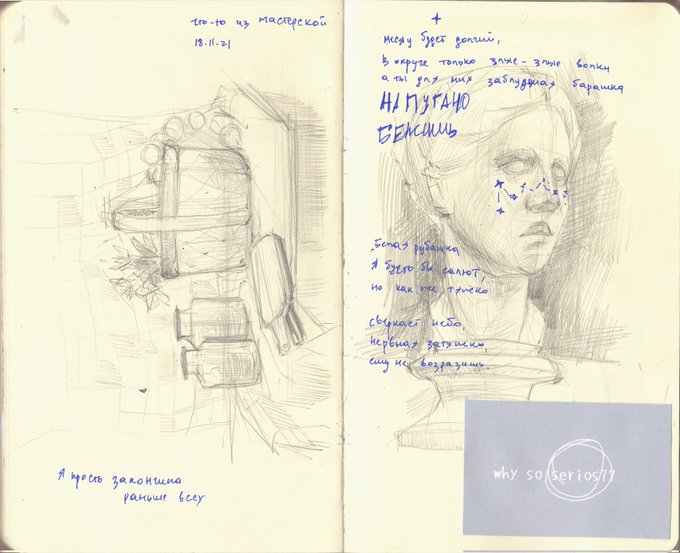 что-то из мастерской
18.11.21
Я просто закончила
раньше всех
месяц будет долгий,
в округе только злые-злые волки
а ты для них заблудшая барашка
НАПУГАНО
БЕЖИШЬ
Белая рубашка
я будто бы салют,
но как же
сверкает небо,
нервная затяжка,
ему не возразишь.
why so serios??